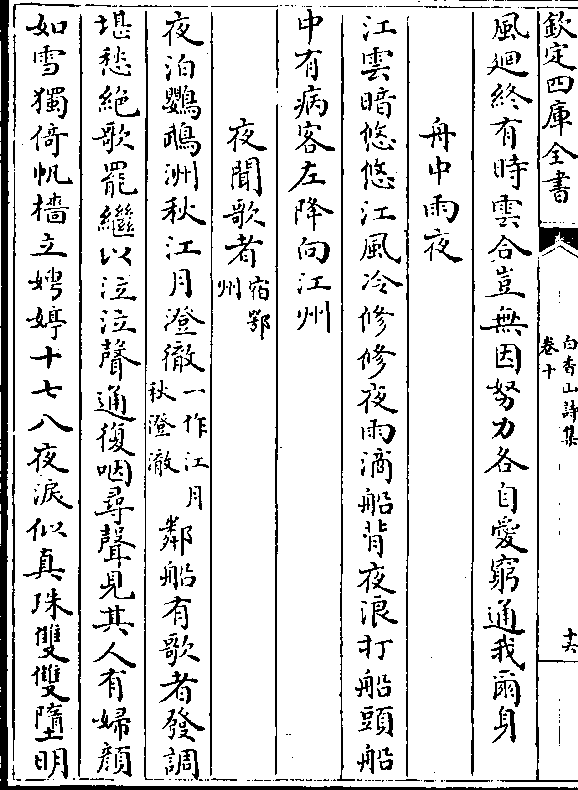 欽定四庫全書
白香山詩集
卷十
十六
風廻終有時雲合豈無因努力各自愛窮通我爾身
舟中雨夜
江雲暗悠悠江風冷修修夜雨滴船背夜浪打船頭船
中有病客左降向江州
夜聞歌者宿鄂
州
夜泊鸚鵡洲秋江月澄徹一作江月
秋澄澈鄰船有歌者發調
堪愁絶歌罷繼以泣泣聲通復咽尋聲見其人有婦顔
如雪獨倚帆檣立娉婷十七八夜淚似真珠雙雙墮明